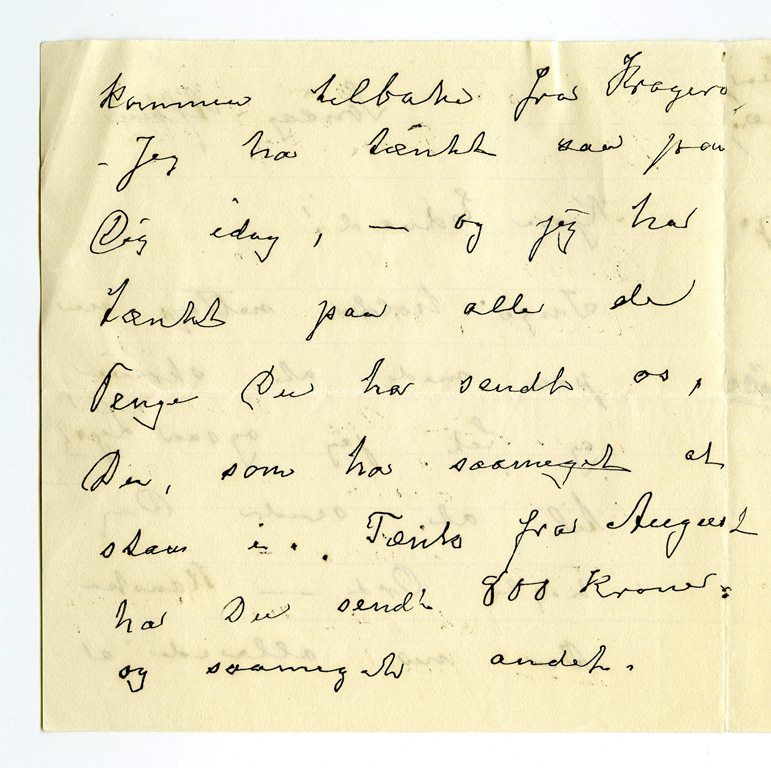 kommen tilbake fra Kragerø,
- Jeg har tænkt saa paa
Dig idag, — og jeg har
tænkt paa alle de
Penge Du har sendt os,
Du, som har saameget at
staa i. . Tænk fra August
har Du sendt 800 Kroner.
og saameget andet.